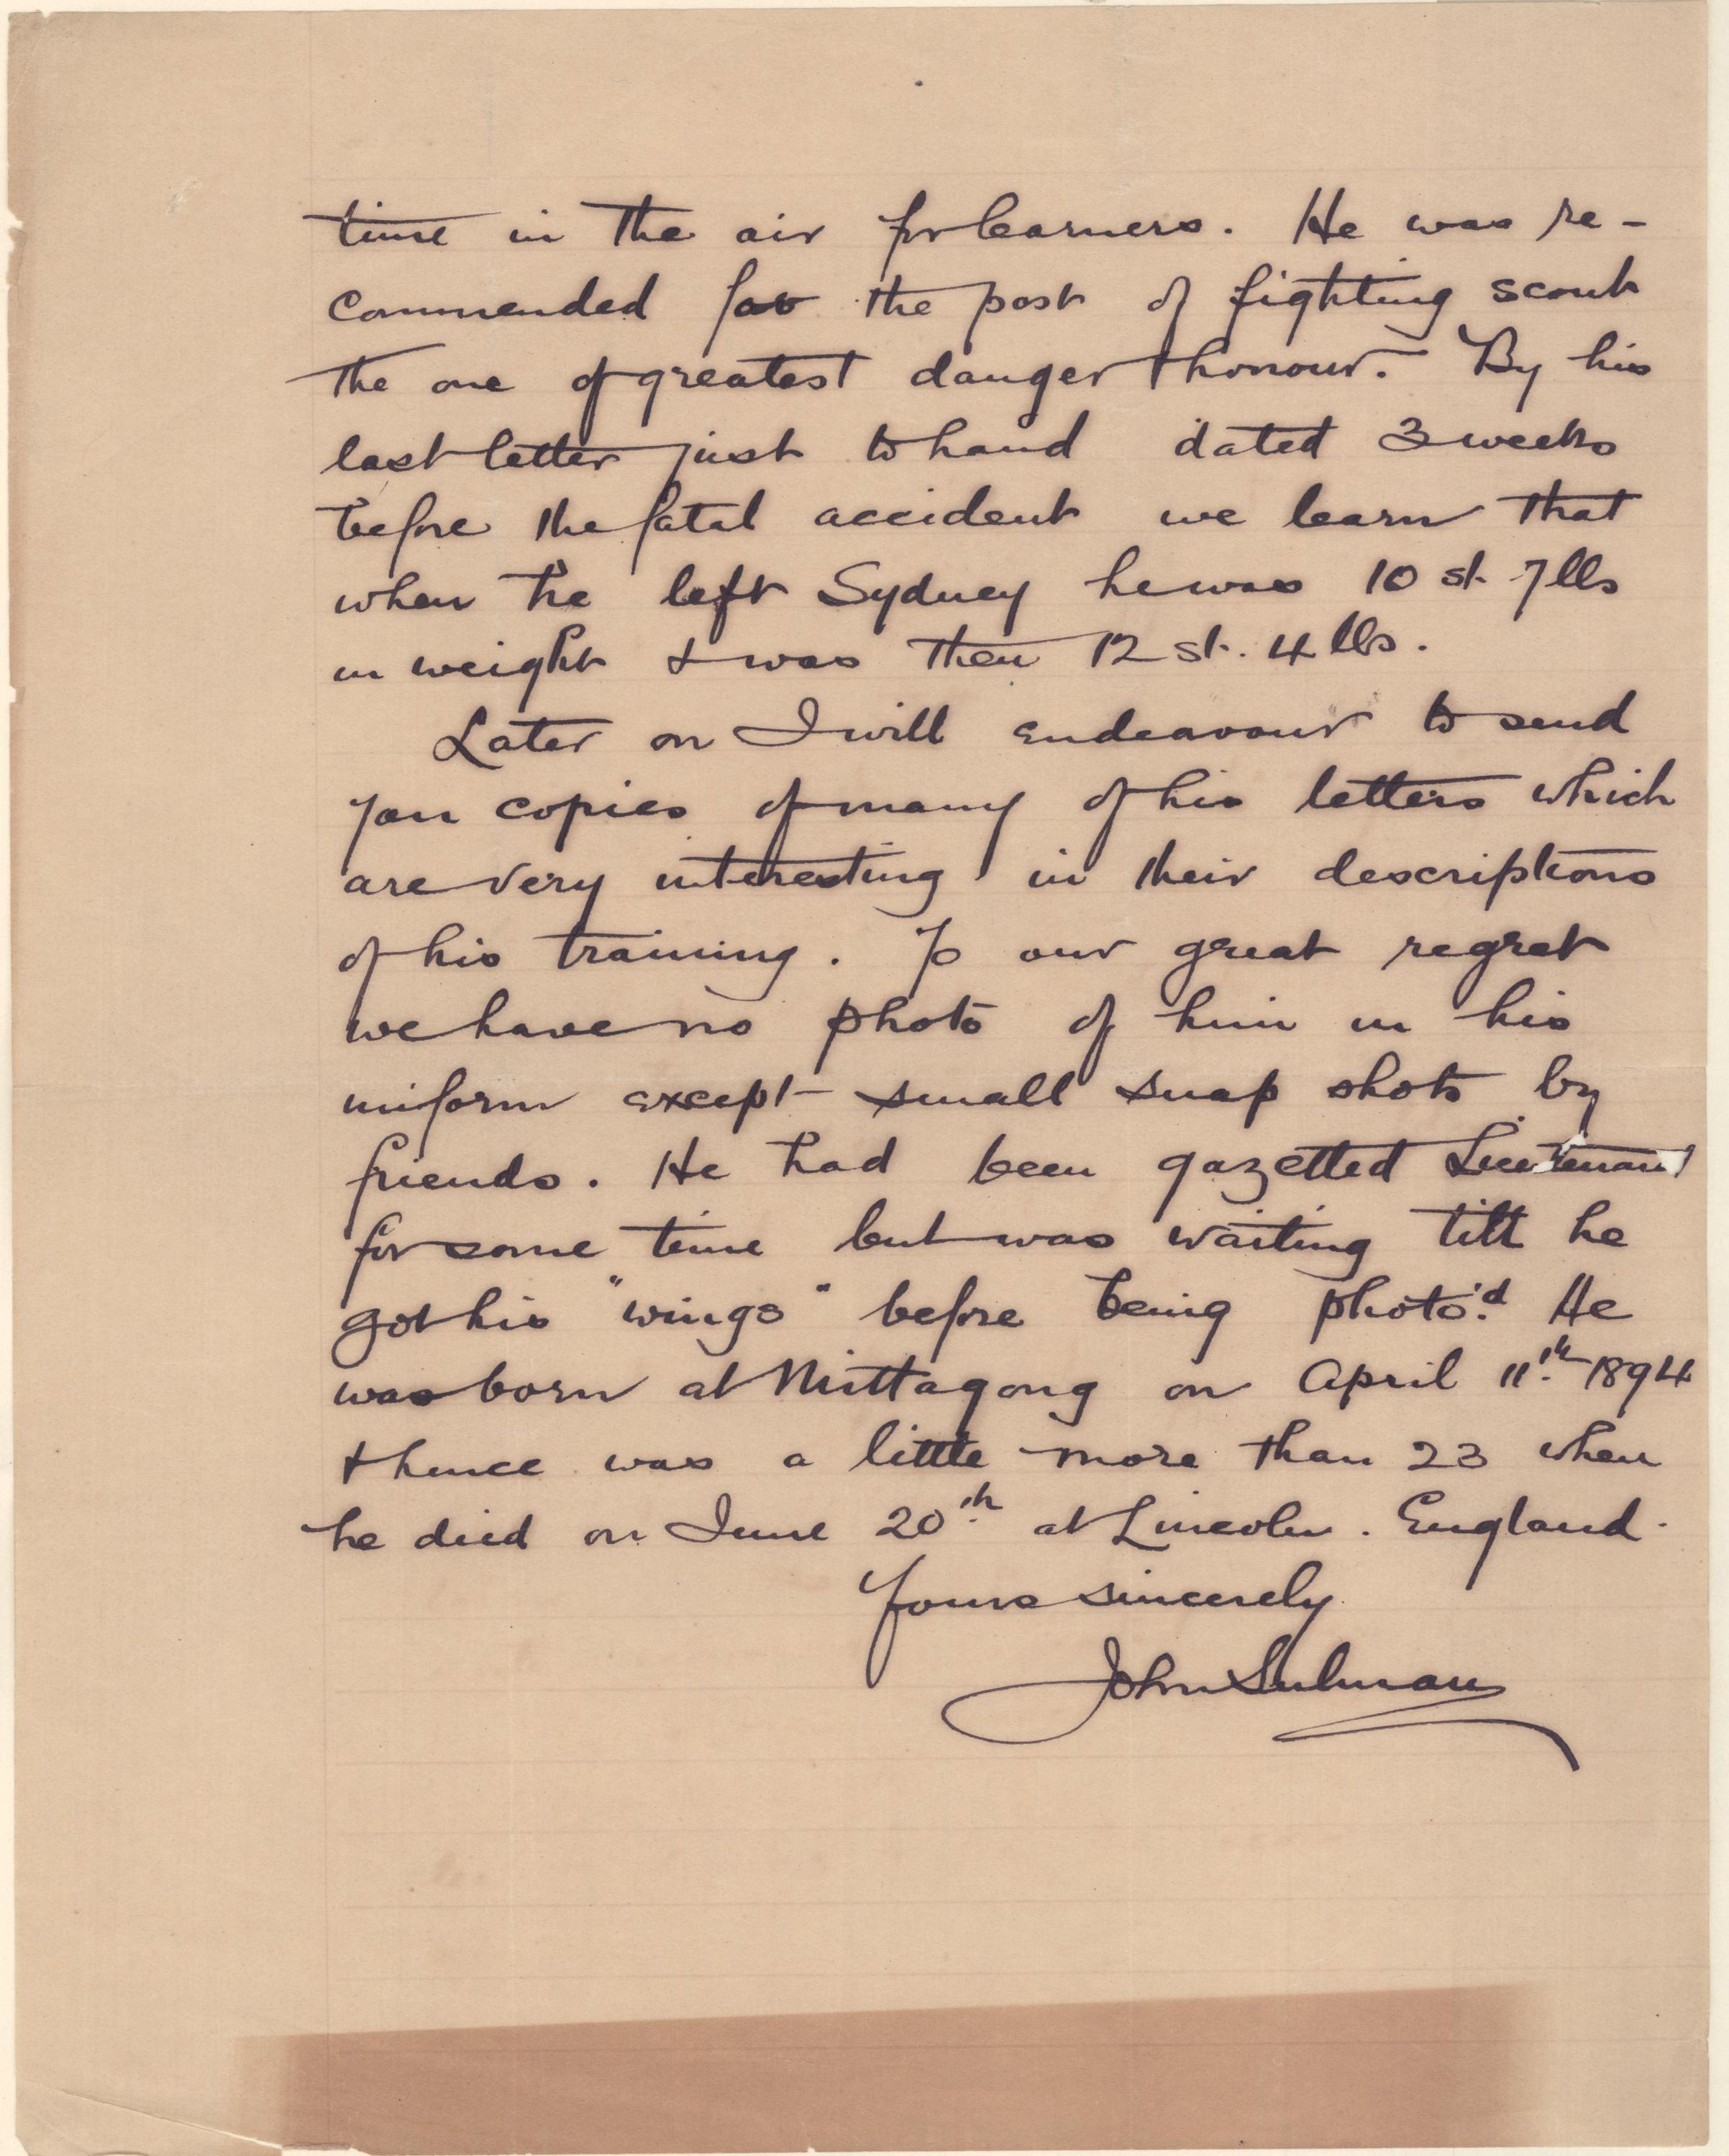 time in the air for learners. He was re-
commended for the post of fighting scout
the one of greatest danger & honour. By his
last letter just to hand dated 3 weeks
before the fatal accident we learn that
when he left Sydney he was 10 st 7 lbs
in weight & was then 12 st. 4 lbs.
Later on I will endeavour to send
you copies of many of his letters which
are very interesting in their descriptions
of his training. To our great regret
we have no photo of him in his
uniform except small snap shots by
friends. He had been gazetted Lieutenant
for some time but was waiting till he
got his "wings" before being photo'd. He
was born at Mittagong on April 11th 1894
& hence was a little more than 23 when
he died on June 20th at Lincoln. England.
Yours sincerely
John Sulman